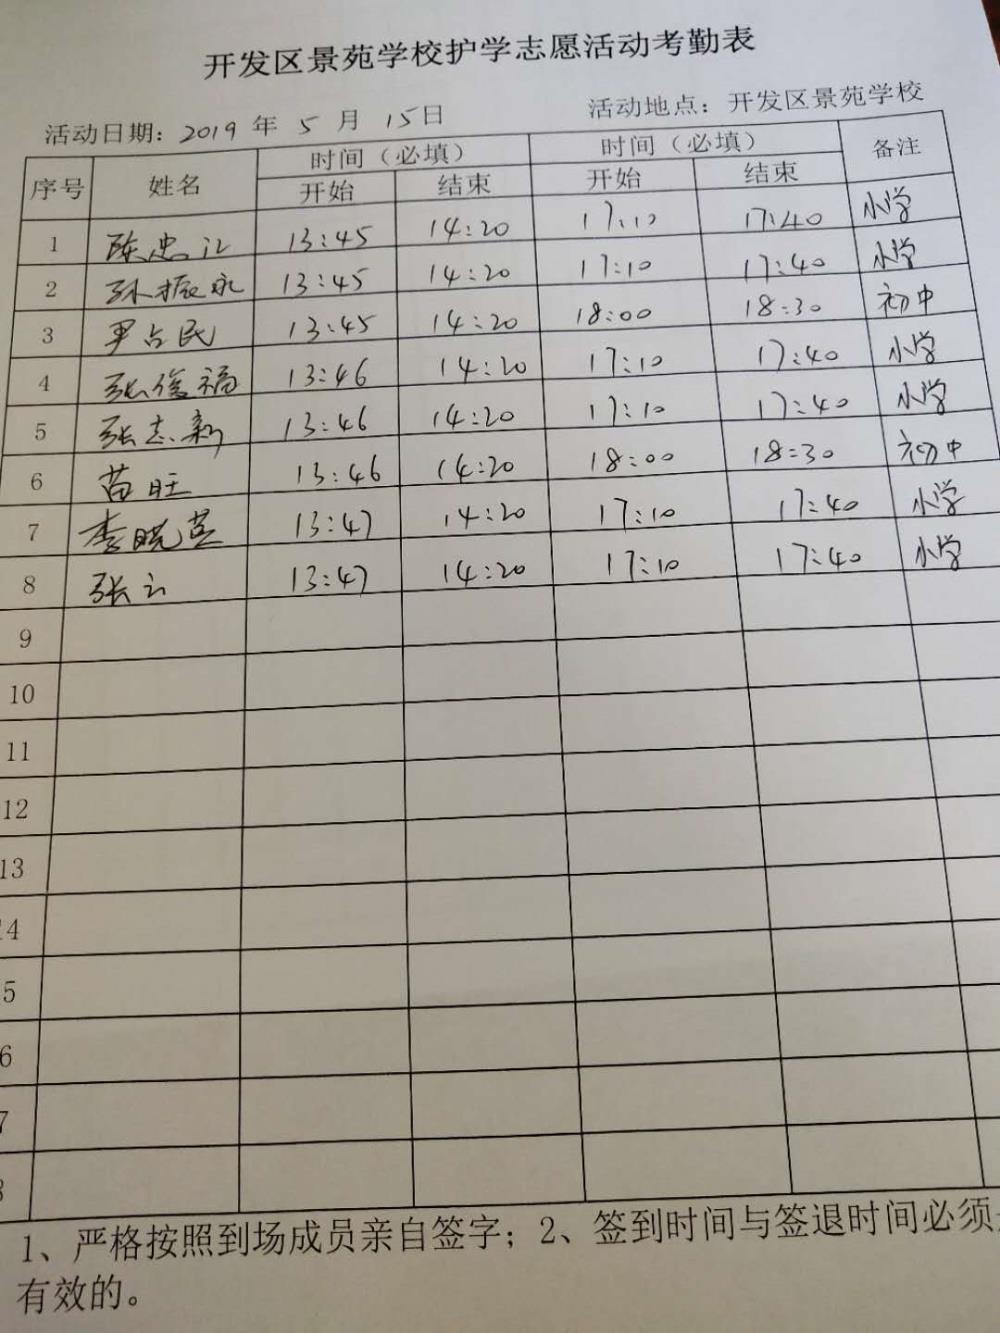 开发区景苑学校护学志愿活动考勤表
活动日期：2019 年 5 月 15日 活动地点：开发区景苑学校
序号 姓名 时间（必填） 时间（必填） 备注
开始 结束 开始 结束
1 陈忠江 13:45 14:20 17:10 17:40 小学
2 孙振永 13:45 14:20 17:10 17:40 小学
3 尹占民 13:45 14:20 18:00 18:30 初中
4 张俊福 13:46 14:20 17:10 17:40 小学
5 张志新 13:46 14:20 17:10 17:40 小学
6 苗旺 13:46 14:20 18:00 18:30 初中
7 李晓英 13:47 14:20 17:10 17:40 小学
8 张云 13:47 14:20 17:10 17:40 小学
9
10
11
12
13
14
5
6
7
8
1、严格按照到场成员亲自签字；2、签到时间与签退时间必须
有效的。